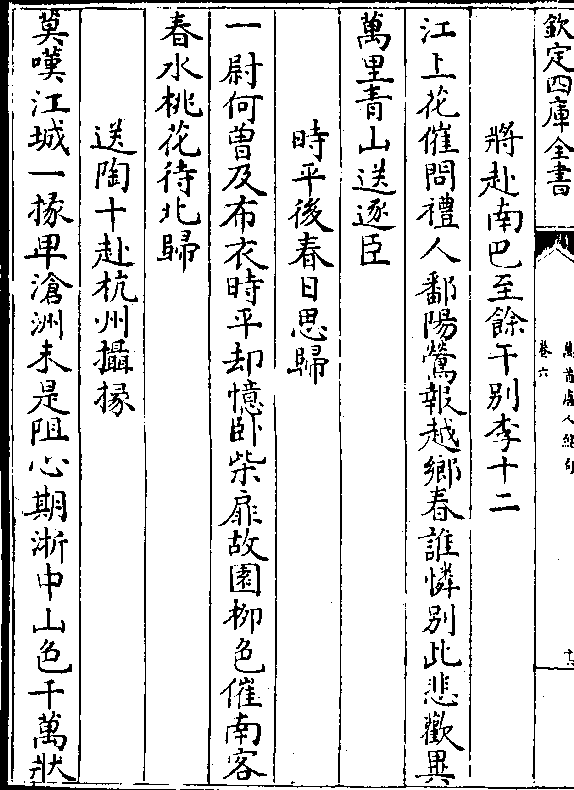 欽定四庫全書
萬首唐人絶句
卷六
將赴南巴至餘干別李十二
江上花催問禮人鄱陽鶯報越鄉春誰憐別此悲歡異
萬里青山送逐臣
時平後春日思歸
一尉何曽及布衣時平却憶卧柴扉故園柳色催南客
春水桃花待北歸
送陶十赴杭州攝掾
莫嘆江城一掾卑滄洲未是阻心期浙中山色千萬狀